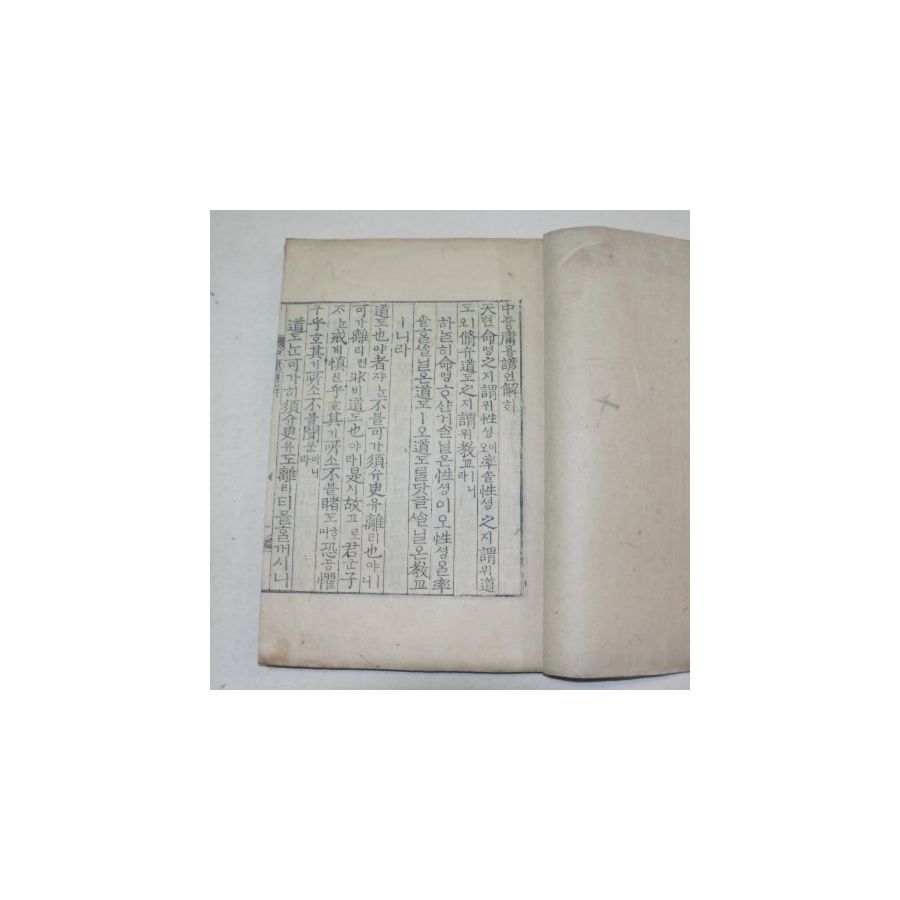 中듕庸용諺언解ᄒᆡ
天텬命명之지謂위性셩이오率솔性셩之지謂위道
도ㅣ오脩슈道도之지謂위敎교ㅣ니라
하ᄂᆞᆯ히命명ᄒᆞ샨거ᄉᆞᆯ닐온性셩이오性셩을率
솔홀ᄭᅥᄉᆞᆯ닐온道도ㅣ오道도ᄅᆞᆯ닷글ᄭᅥᄉᆞᆯ닐온敎교
ㅣ니라
道도也야者쟈ᄂᆞᆫ不블可가須슈臾유離리也야ㅣ니
可가離리면非비道도也야ㅣ라是시故고로君군子
ᄌᆞᄂᆞᆫ戒계愼신乎호其기所소不블睹도ᄒᆞ며恐공懼
구乎호其기所소不블聞문이니라
道도ᄂᆞᆫ可가히須슈臾유도離리티몯홀꺼시니